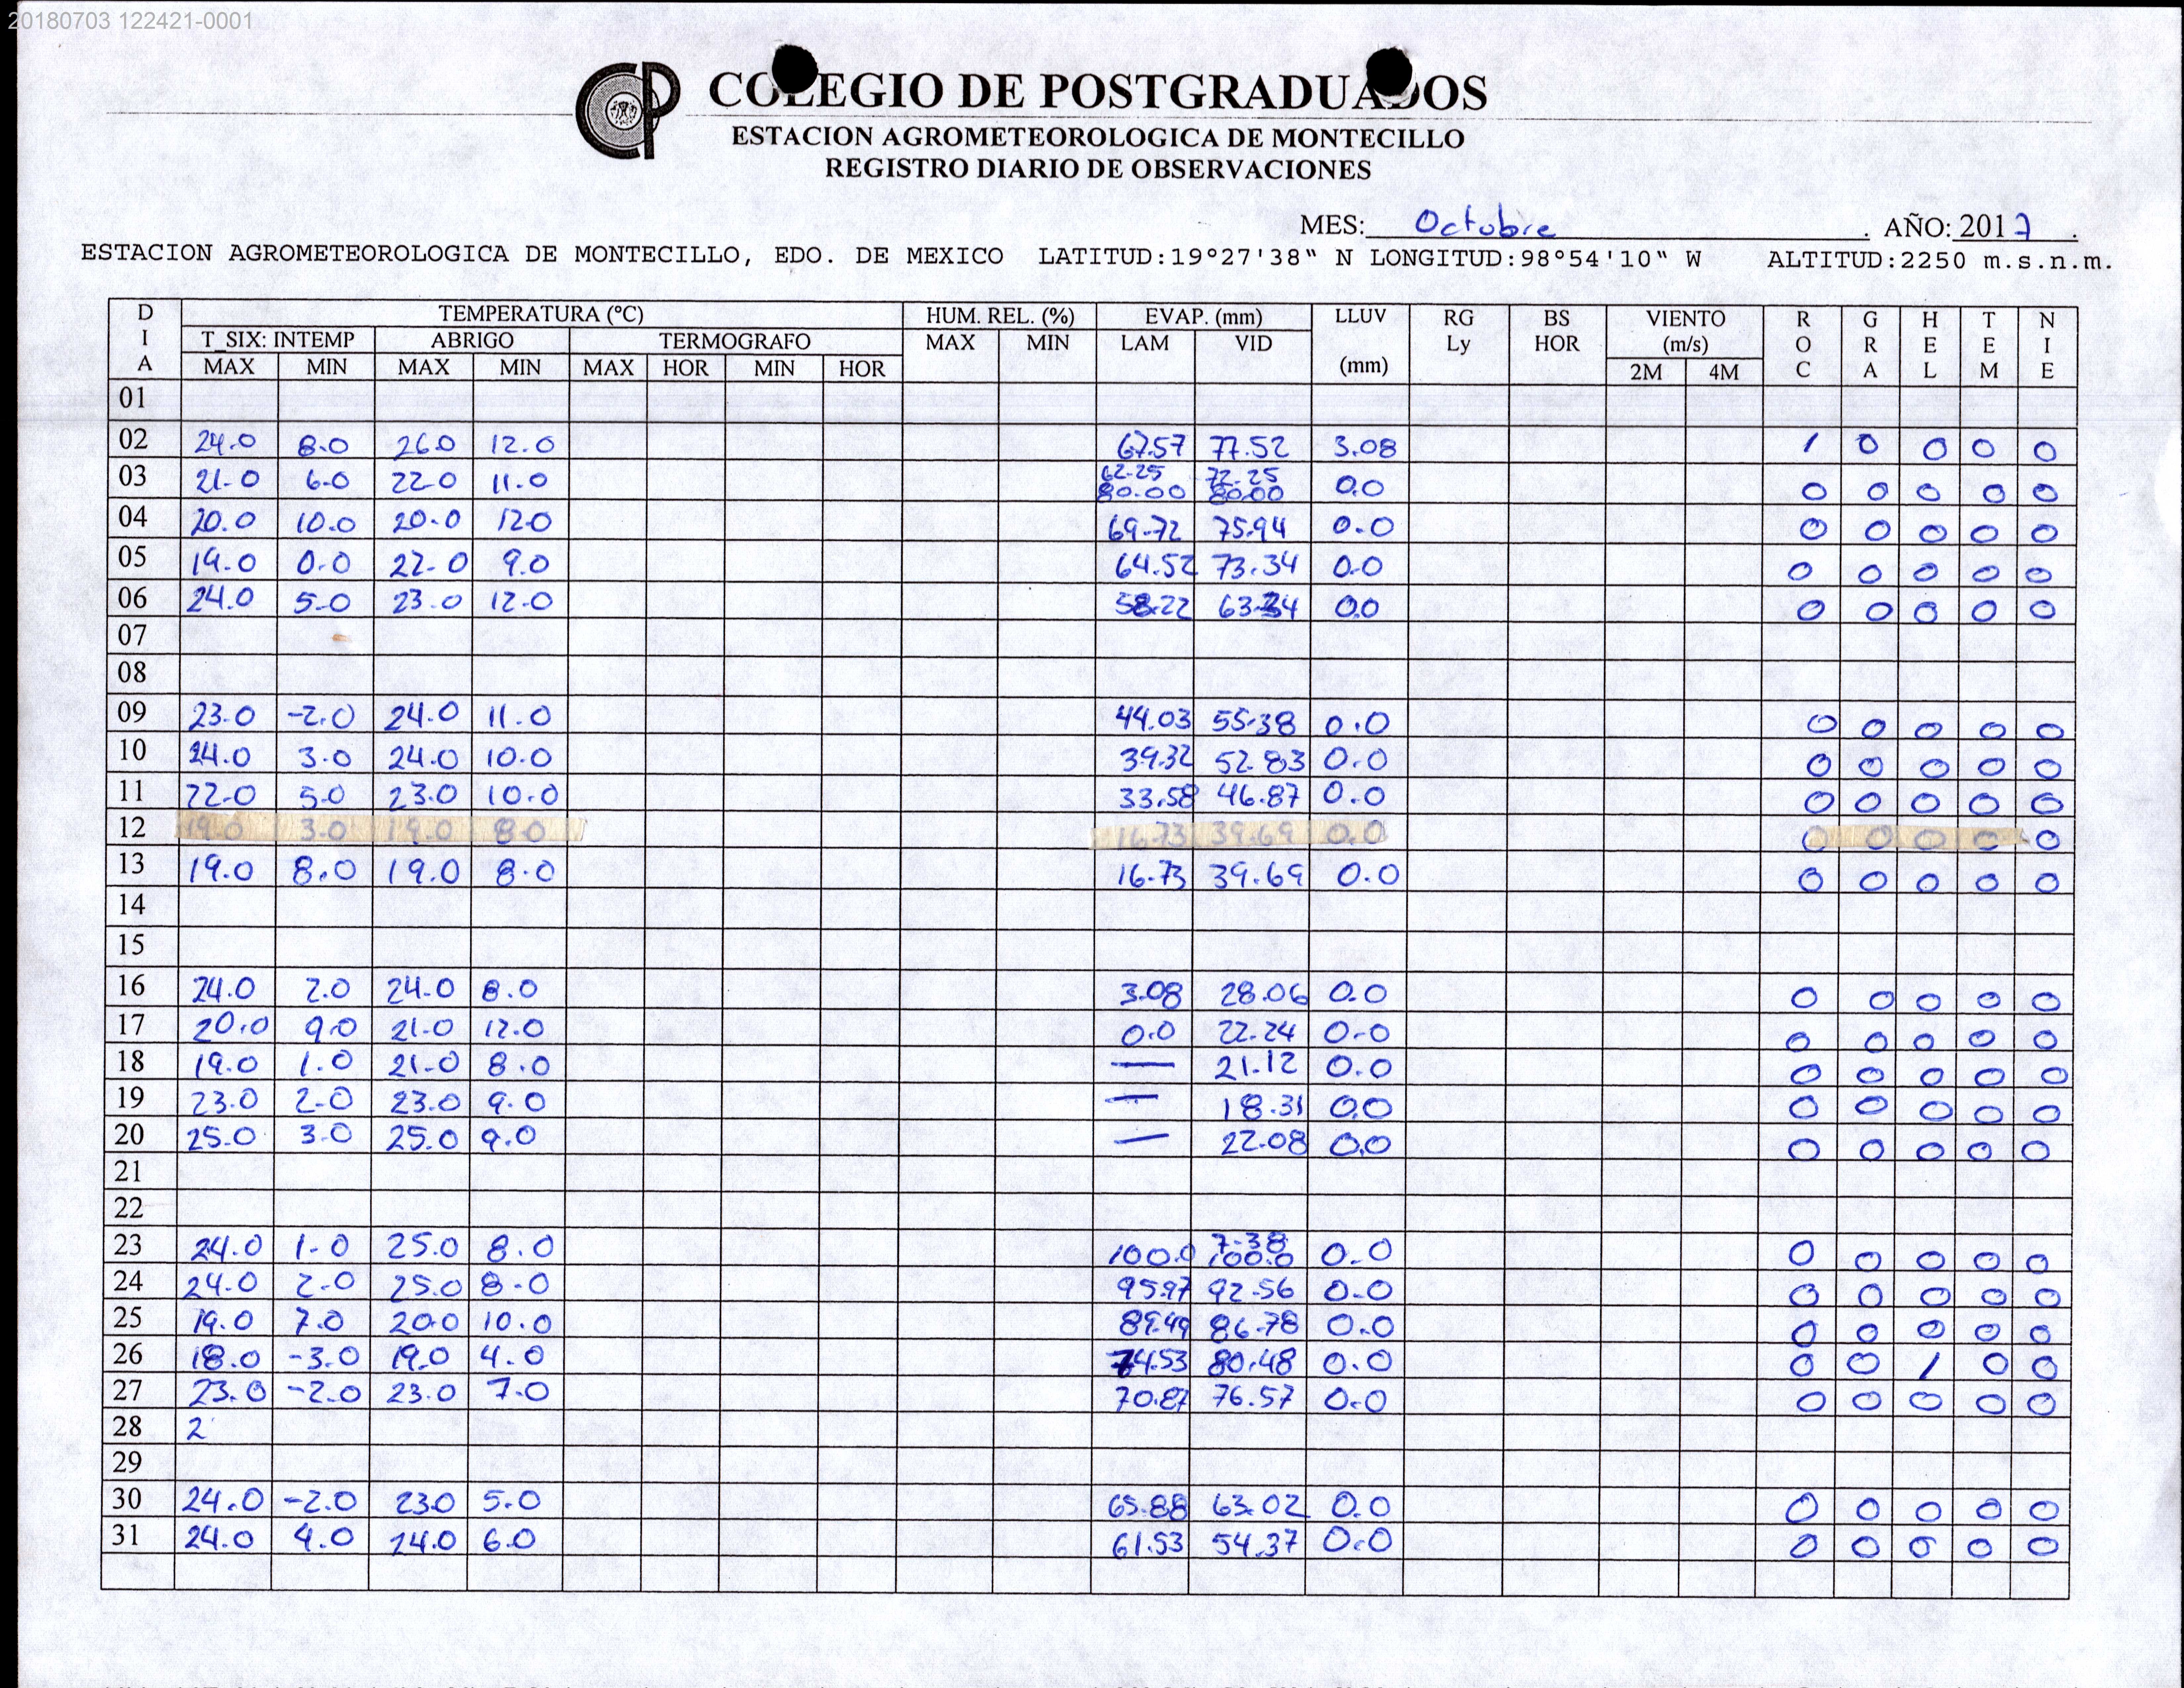 20180703 122421-0001
COLEGIO DE POSTGRADUADOS
ESTACION AGROMETEOROLOGICA DE MONTECILLO
REGISTRO DIARIO DE OBSERVACIONES
MES: Octubre . AÑO: 2017 .
ESTACION AGROMETEOROLOGICA DE MONTECILLO, EDO. DE MEXICO LATITUD:19°27'38" N LONGITUD:98°54'10" W ALTITUD:2250 m.s.n.m.
DIA TEMPERATURA (°C) HUM. REL. (%) EVAP. (mm) LLUV RG BS VIENTO ROC GRA HEL TEM NIE
T_SIX: INTEMP ABRIGO TERMOGRAFO MAX MIN LAM VID Ly HOR (m/s)
MAX MIN MAX MIN MAX HOR MIN HOR (mm) 2M 4M
01
02 24.0 8.0 26.0 12.0 67.57 77.52 3.08 1 0 0 0 0
03 21.0 6.0 22.0 11.0 62.25 72.25 0.0 0 0 0 0 0
80.00 80.00
04 20.0 10.0 20.0 12.0 69.72 75.94 0.0 0 0 0 0 0
05 19.0 0.0 22.0 9.0 64.52 73.34 0.0 0 0 0 0 0
06 24.0 5.0 23.0 12.0 58.22 63.34 0.0 0 0 0 0 0
07
08
09 23.0 -2.0 24.0 11.0 44.03 55.38 0.0 0 0 0 0 0
10 24.0 3.0 24.0 10.0 39.32 52.83 0.0 0 0 0 0 0
11 22.0 5.0 23.0 10.0 33.58 46.87 0.0 0 0 0 0 0
12 19.0 3.0 19.0 8.0 16.73 39.69 0.0 0 0 0 0 0
13 19.0 8.0 19.0 8.0 16.73 39.69 0.0 0 0 0 0 0
14
15
16 24.0 2.0 24.0 8.0 3.08 28.06 0.0 0 0 0 0 0
17 20.0 9.0 21.0 12.0 0.0 22.24 0.0 0 0 0 0 0
18 19.0 1.0 21.0 8.0 — 21.12 0.0 0 0 0 0 0
19 23.0 2.0 23.0 9.0 — 18.31 0.0 0 0 0 0 0
20 25.0 3.0 25.0 9.0 — 22.08 0.0 0 0 0 0 0
21
22
23 24.0 1.0 25.0 8.0 100.0 7.38 0.0 0 0 0 0 0
100.0
24 24.0 2.0 25.0 8.0 95.97 92.56 0.0 0 0 0 0 0
25 19.0 7.0 20.0 10.0 89.49 86.78 0.0 0 0 0 0 0
26 18.0 -3.0 19.0 4.0 74.53 80.48 0.0 0 0 1 0 0
27 23.0 -2.0 23.0 7.0 70.87 76.57 0.0 0 0 0 0 0
28 2
29
30 24.0 -2.0 23.0 5.0 65.88 63.02 0.0 0 0 0 0 0
31 24.0 4.0 24.0 6.0 61.53 54.37 0.0 0 0 0 0 0